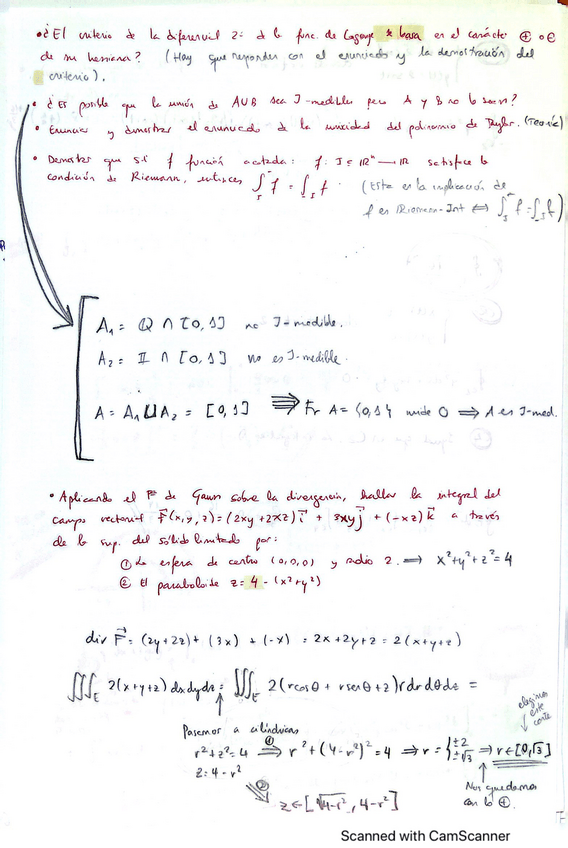 • ¿El criterio de la diferencial 2ª de la func. de Lagrange se basa en el carácter ⊕ o ⊖
de su hessiana? (Hay que responder con el enunciado y la demostración del
criterio).
• ¿Es posible que la unión de AUB sea J-medibles pero A y B no lo sean?
• Enunciar y demostrar el enunciado de la unicidad del polinomio de Taylor. (Teoría)
• Demostrar que si f función acotada: f: I ⊂ ℝⁿ → ℝ satisface la
condición de Riemann, entonces ∫̄_I f = ∫_I f. (Esta es la implicación de
f es Riemann-Int ⇔ ∫̄_I f = ∫_I f)
A₁ = ℚ ∩ [0,1] no J-medible.
A₂ = 𝕀 ∩ [0,1] no es J-medible.
A = A₁ ⊔ A₂ = [0,1] ⟹ Fr A = {0,1} mide 0 ⟹ A es J-med.
• Aplicando el Tª de Gauss sobre la divergencia, hallar la integral del
campo vectorial F⃗(x,y,z) = (2xy + 2xz) i⃗ + 3xy j⃗ + (-xz) k⃗ a través
de la sup. del sólido limitado por:
① La esfera de centro (0,0,0) y radio 2. ⟹ x²+y²+z² = 4
② El paraboloide z = 4 - (x²+y²)
div F⃗ = (2y+2z) + (3x) + (-x) = 2x+2y+2 = 2(x+y+z)
∭_E 2(x+y+z) dxdydz = ∭_E 2(rcosθ + rsenθ + z) r dr dθ dz =
elegimos
este
corte
Pasamos a cilíndricas
r²+z² = 4 ⟹ ① r² + (4-r²)² = 4 ⟹ r = { ±2 ±√3 ⟹ r ∈ [0,√3]
z = 4-r²
Nos quedamos
con lo ⊕.
② z ∈ [√4-r², 4-r²]
Scanned with CamScanner